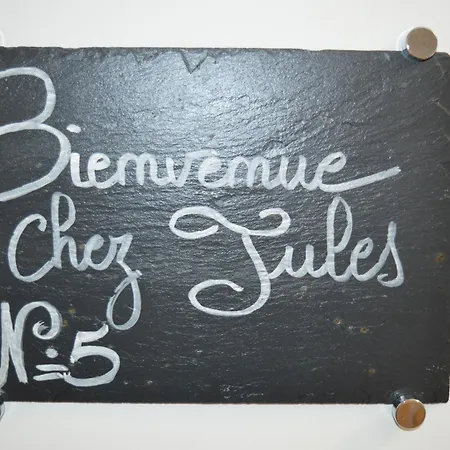 Bienvenue
chez Jules
N° 5